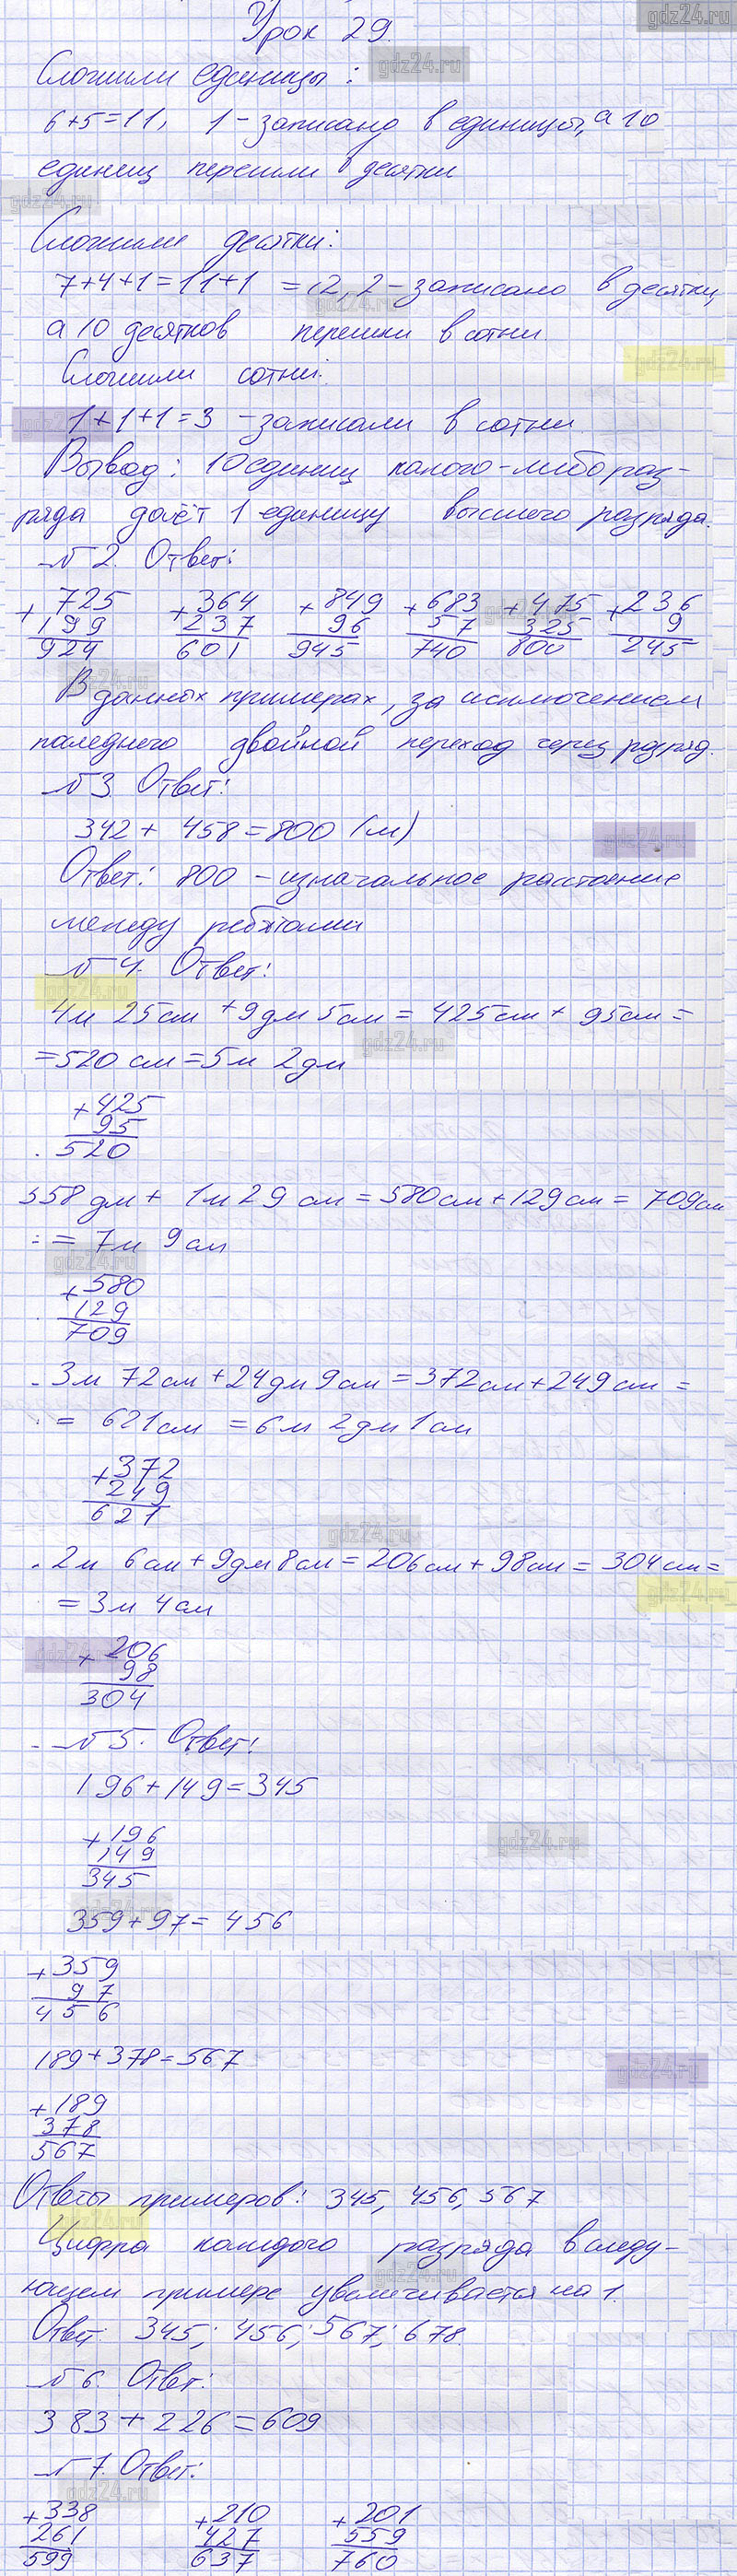 Урок 29.
Сложили единицы:
6+5=11, 1 - записано в единицы, а 10
единиц перешли в десятки
Сложили десятки:
7+4+1=11+1 =12, 2 - записано в десятки,
а 10 десятков перешли в сотни.
Сложили сотни:
1+1+1=3 - записали в сотни.
Вывод: 10 единиц какого-либо раз-
ряда даёт 1 единицу высшего разряда.
№ 2. Ответ:
+725 +364 +849 +683 +475 +236
199 237 96 57 325 9
924 601 945 740 800 245
В данных примерах, за исключением
последнего двойной переход через разряд.
№ 3. Ответ:
342 + 458 = 800 (м)
Ответ: 800 - изначальное расстояние
между ребятами
№ 4. Ответ:
4м 25см + 9дм 5см = 425см + 95см =
= 520 см = 5м 2дм
+425
95
520
58 дм + 1м 29 см = 580см + 129см = 709см
= 7м 9см
+580
129
709
3м 72см + 24дм 9см = 372см + 249см =
= 621см = 6м 2дм 1см
+372
249
621
2м 6см + 9дм 8см = 206см + 98см = 304см =
= 3м 4см
+206
98
304
№ 5. Ответ:
196 + 149 = 345
+196
149
345
359 + 97 = 456
+359
97
456
189 + 378 = 567
+189
378
567
Ответы примеров: 345, 456, 567
Цифра каждого разряда в следу-
ющем примере увеличивается на 1.
Ответ: 345; 456; 567; 678.
№ 6. Ответ:
383 + 226 = 609
№ 7. Ответ:
+338 +210 +201
261 427 559
599 637 760
gdz24.ru